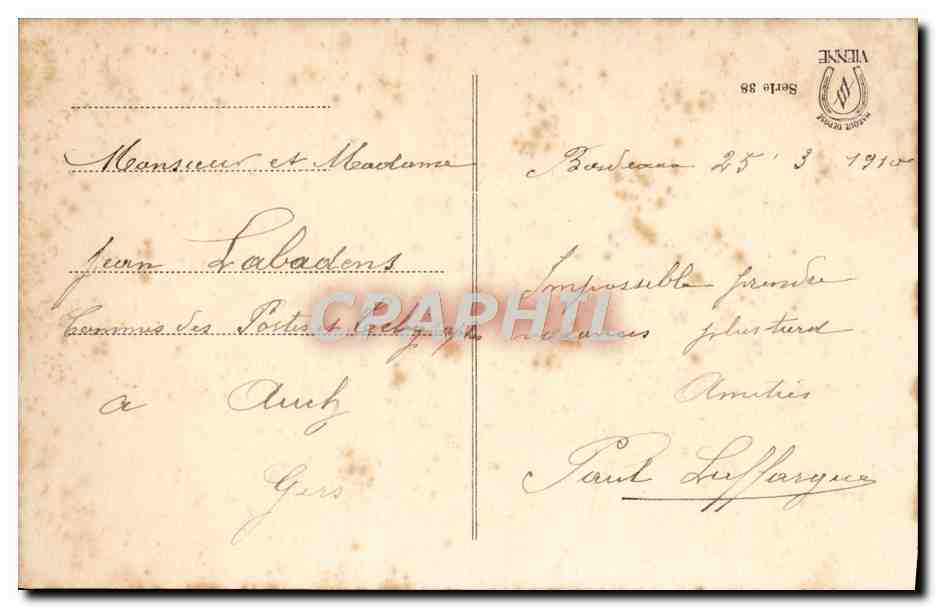 VIENNE
MARQUE DÉPOSÉ
Serie 38
Monsieur et Madame
Jean Labadens
Commis des Postes et
à Auch
Gers
Bordeaux 25 3 1910
Impossible prendre
vacances plus tard
Amitiés
Paul Laffargue
CRAPHIL